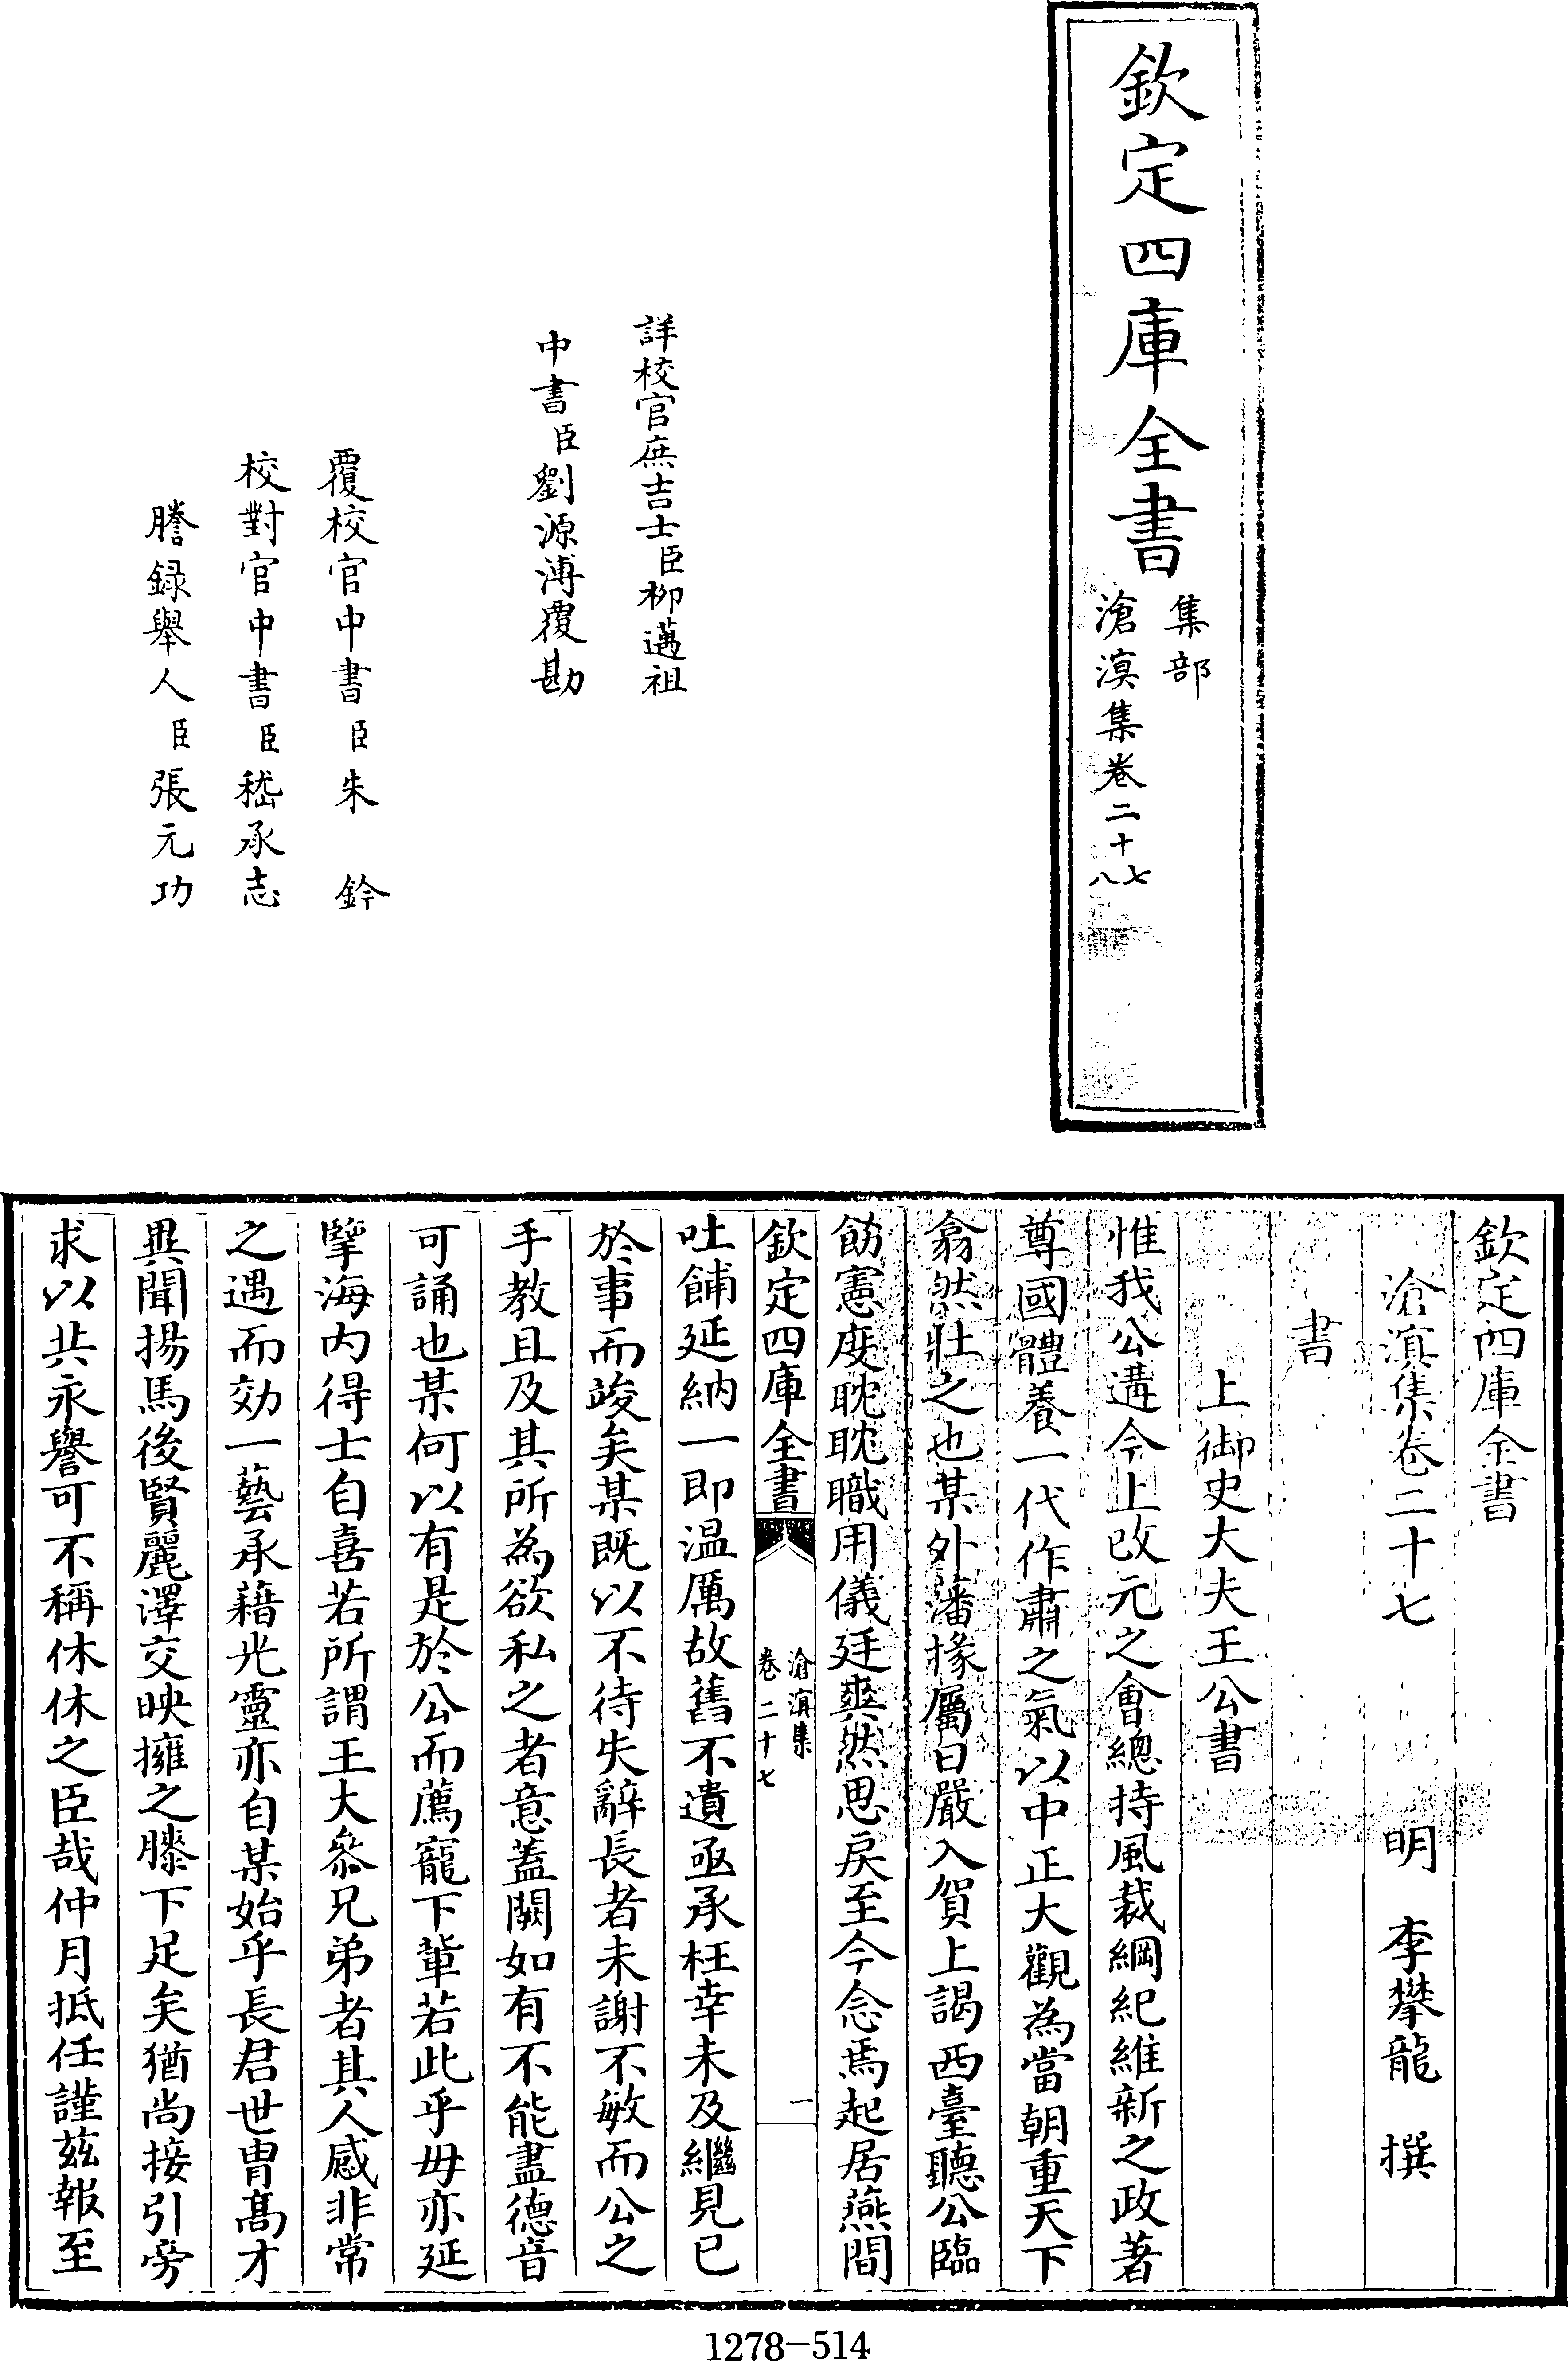 欽定四庫全書
集部
滄溟集卷二十七
八
詳校官庶吉士臣柳邁祖
中書臣劉源溥覆勘
覆校官中書臣朱鈐
校對官中書臣嵇承志
謄録舉人臣張元功
欽定四庫全書
滄溟集卷二十七
明 李攀龍 撰
書
上御史大夫王公書
惟我公遘今上改元之會總持風裁綱紀維新之政著
尊國體養一代作肅之氣以中正大觀為當朝重天下
翕然壯之也某外藩掾屬日嚴入賀上謁西臺聽公臨
飭憲度眈眈職用儀廷爽然思戾至今念焉起居燕間
欽定四庫全書
滄溟集
卷二十七
一
吐餔延納一即温厲故舊不遺亟承枉幸未及繼見已
於事而竣矣某既以不待失辭長者未謝不敏而公之
手教且及其所為欲私之者意蓋闕如有不能盡德音
可誦也某何以有是於公而薦寵下輩若此乎毋亦延
擥海内得士自喜若所謂王大叅兄弟者其人感非常
之遇而効一藝承藉光靈亦自某始乎長君世胄髙才
異聞揚馬後賢麗澤交映擁之膝下足矣猶尚接引旁
求以共永譽可不稱休休之臣哉仲月抵任謹兹報至
1278-514